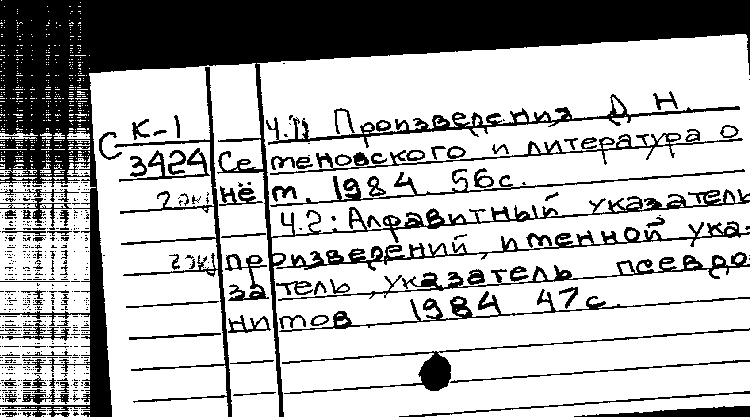 С К-1 Ч.1: Произведения Д. Н.
3424 Семеновского и литература о
2 экз нём. 1984. 56с.
Ч.2: Алфавитный указатель
2 экз произведений, именной ука-
затель, указатель псевдо-
нимов. 1984 47с.